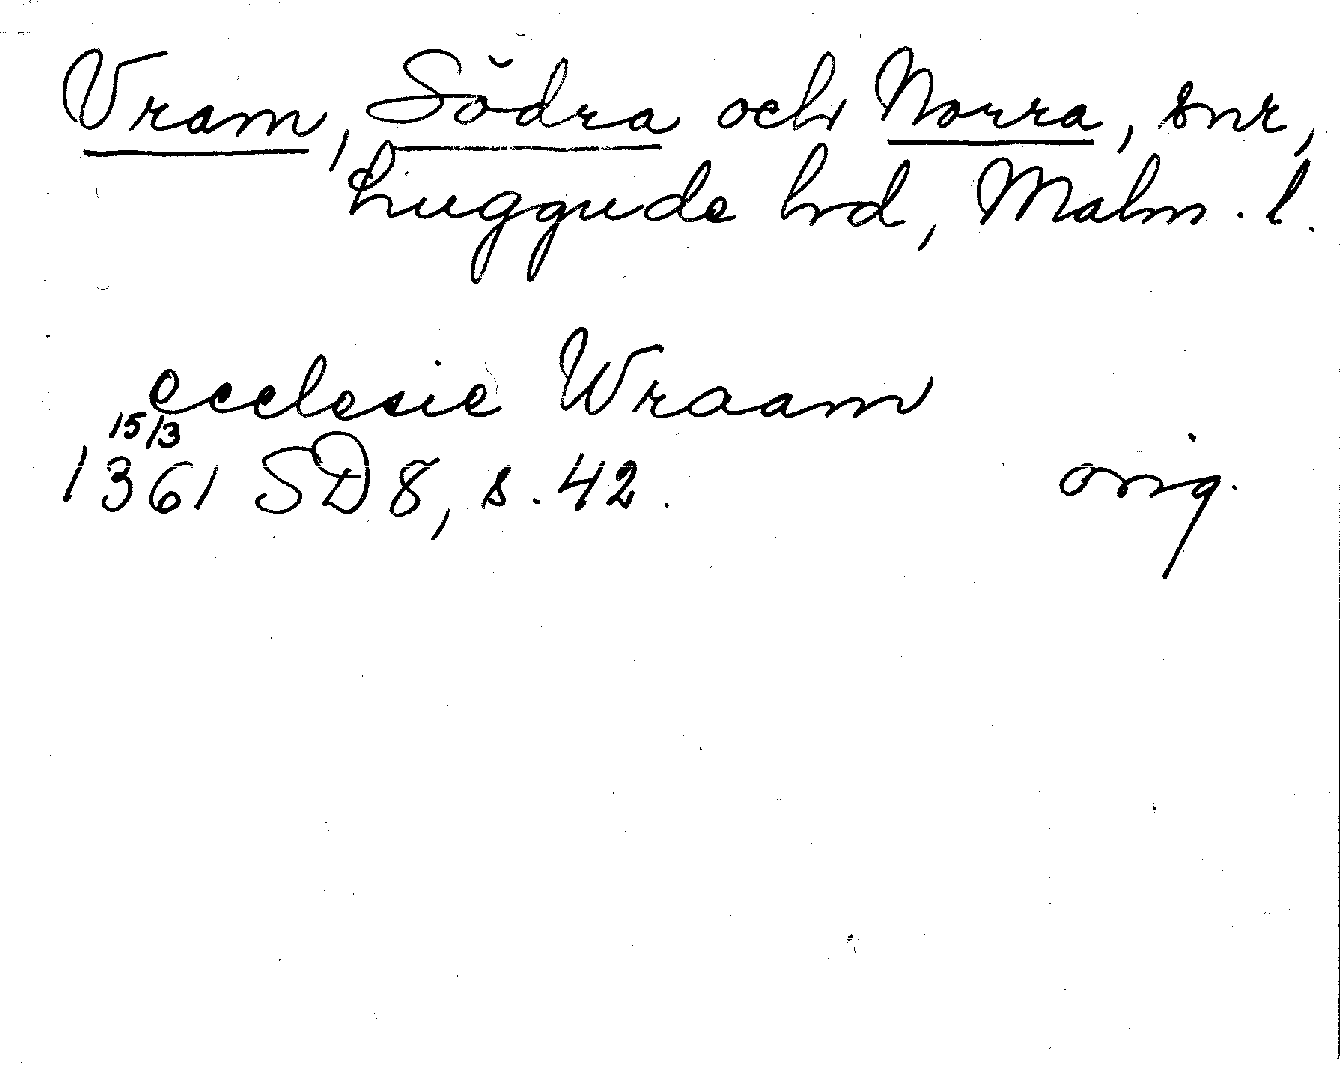 Vram, Södra och Norra, snr,
Luggude hrd, Malm. l.
ecclesie Wraam
15/3
1361 SD 8, s. 42. orig.